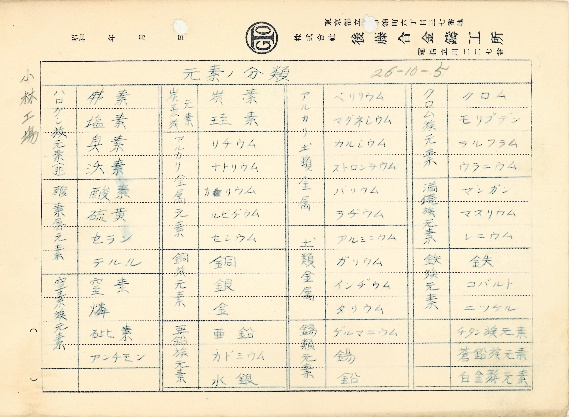 株式会社 後藤合金鋳工所
年
元素ノ分類 26-10-5
小林工場
ハロゲン族元素
弗素
塩素
臭素
沃素
酸素属元素
酸素
硫黄
セラン
テルル
窒素族元素
窒素
燐
砒素
アンチモン
炭素
珪素
アルカリ金属元素
リチウム
ナトリウム
カリウム
ルビヂウム
セシウム
銅族元素
銅
銀
金
亜鉛族元素
亜鉛
カドミウム
水銀
アルカリ土類金属
ベリリウム
マグネシウム
カルシウム
ストロンチウム
バリウム
ラヂウム
土類金属
アルミニウム
ガリウム
インヂウム
タリウム
錫族元素
ゲルマニウム
錫
鉛
クロム族元素
クロム
モリブデン
ウラニウム
満俺族元素
マンガン
マスリウム
レニウム
鉄族元素
鉄
コバルト
ニッケル
チタン族元素
蒼鉛族元素
白金族元素